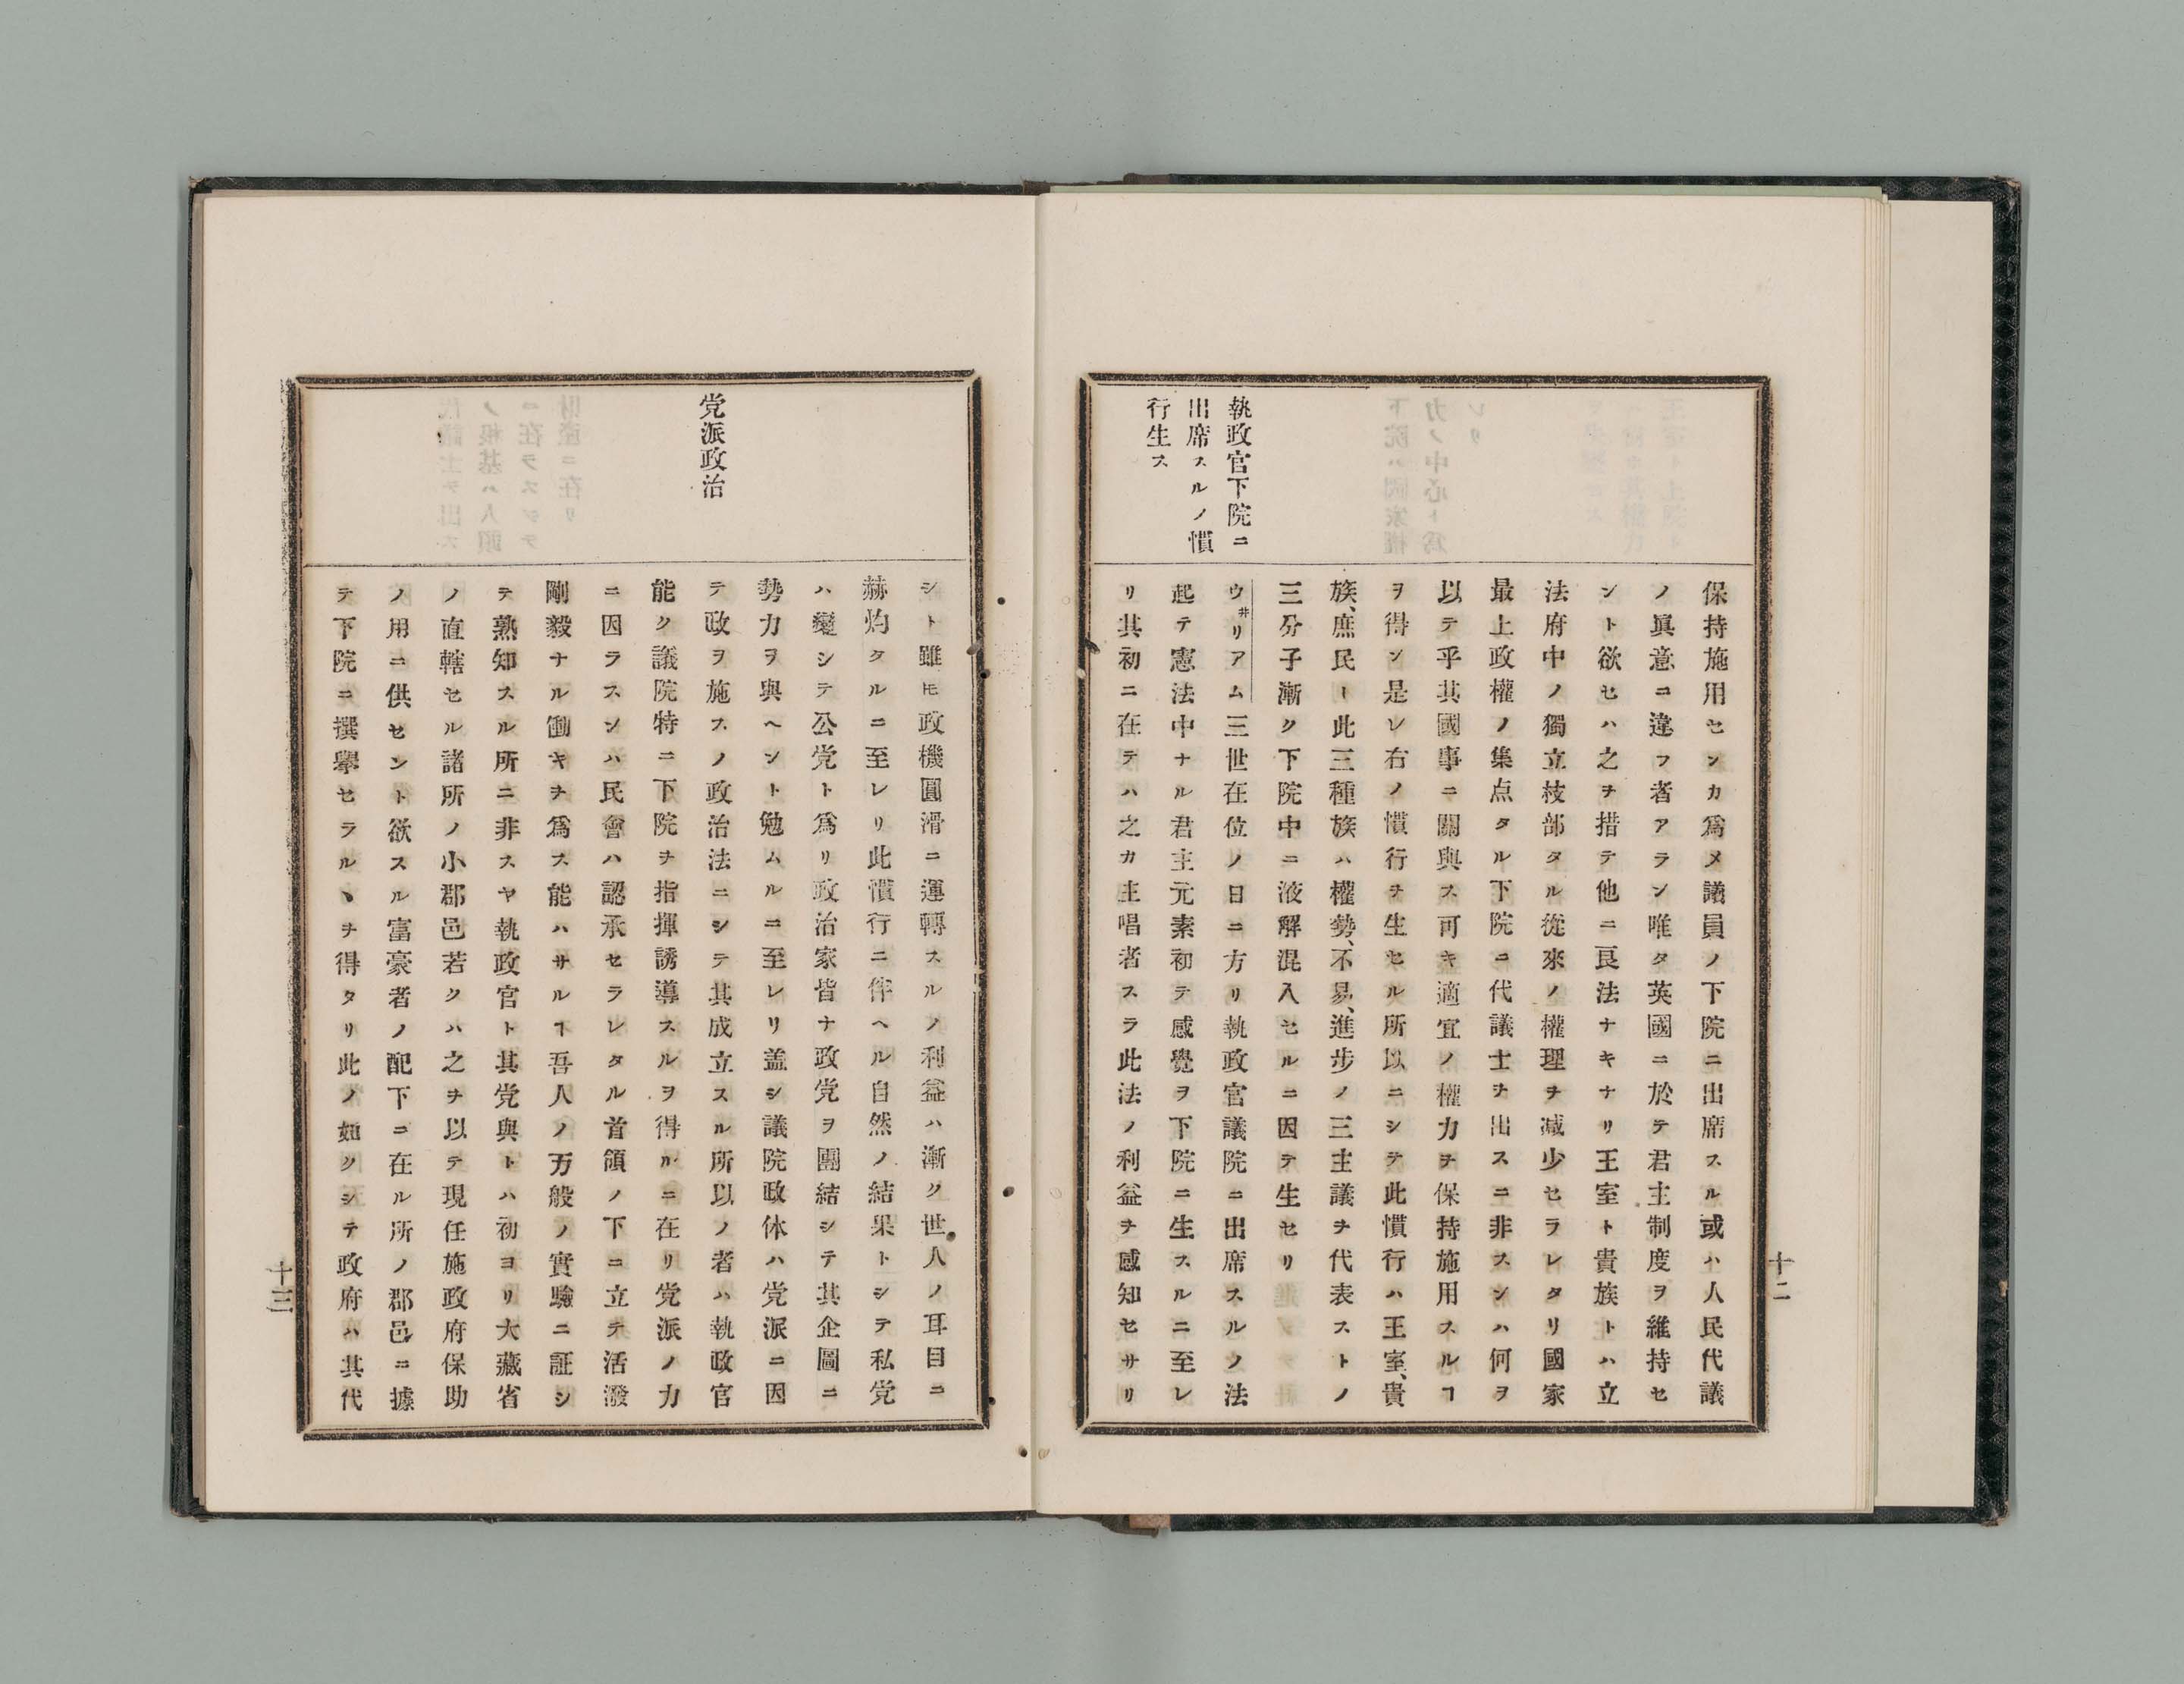 執政官下院ニ
出席スルノ慣
行生ス
保持施用センカ爲メ議員ノ下院ニ出席スル或ハ人民代議
ノ眞意ニ違フ者アラン唯タ英國ニ於テ君主制度ヲ維持セ
ント欲セハ之ヲ措テ他ニ良法ナキナリ王室ト貴族トハ立
法府中ノ獨立枝部タル從來ノ權理ヲ减少セラレタリ國家
最上政權ノ集点タル下院ニ代議士ヲ出スニ非スンハ何ヲ
以テ乎其國事ニ關與ス可キ適宜ノ權力ヲ保持施用スルヿ
ヲ得ン是レ右ノ慣行ヲ生セル所以ニシテ此慣行ハ王室、貴
族、庶民ー此三種族ハ權勢、不易、進步ノ三主議ヲ代表ストノ
三分子漸ク下院中ニ液解混入セルニ因テ生セリ
ウ井リアム三世在位ノ日ニ方リ執政官議院ニ出席スルノ法
起テ憲法中ナル君主元素初テ感覺ヲ下院ニ生スルニ至レ
リ其初ニ在テハ之カ主唱者スラ此法ノ利益ヲ感知セサリ
十二
党派政治
シト雖𪜈政機圓滑ニ運轉スルノ利益ハ漸ク世人ノ耳目ニ
赫灼タルニ至レリ此慣行ニ伴ヘル自然ノ結果トシテ私党
ハ變シテ公党ト爲リ政治家皆ナ政党ヲ團結シテ其企圖ニ
勢力ヲ與ヘント勉ムルニ至レリ盖シ議院政体ハ党派ニ因
テ政ヲ施スノ政治法ニシテ其成立スル所以ノ者ハ執政官
能ク議院特ニ下院ヲ指揮誘導スルヲ得ルニ在リ党派ノ力
ニ因ラスンハ民會ハ認承セラレタル首領ノ下ニ立テ活潑
剛毅ナル働キヲ爲ス能ハサルヿ吾人ノ万般ノ實驗ニ証シ
テ熟知スル所ニ非スヤ執政官ト其党與トハ初ヨリ大藏省
ノ直轄セル諸所ノ小郡邑若クハ之ヲ以テ現任施政府保助
ノ用ニ供セント欲スル富豪者ノ配下ニ在ル所ノ郡邑ニ據
テ下院ニ撰擧セラルヽヲ得タリ此ノ如クシテ政府ハ其代
十三